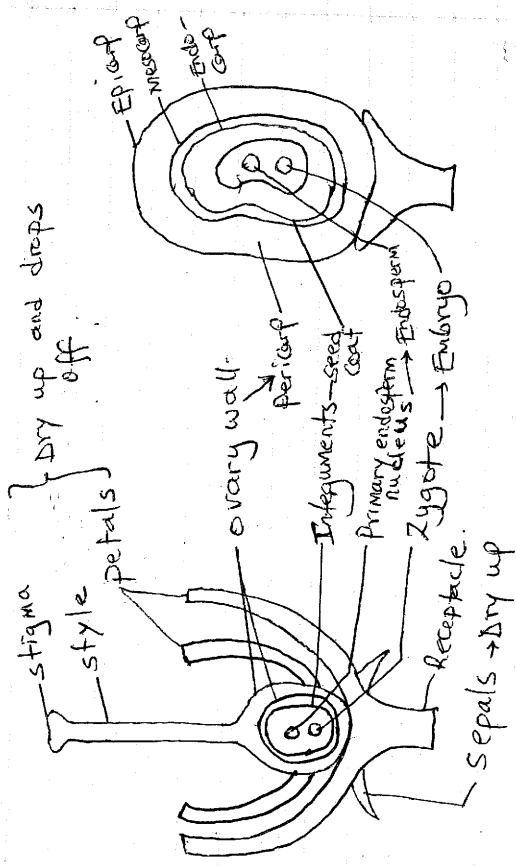 Stigma
Style
Petals
Dry up and drops
off.
Ovary wall
Pericarp
Integuments—seed
coat
Primary endosperm
nucleus → Endosperm
Zygote → Embryo
Receptacle.
Sepals → Dry up
Epicarp
Mesocarp
Endo-
carp